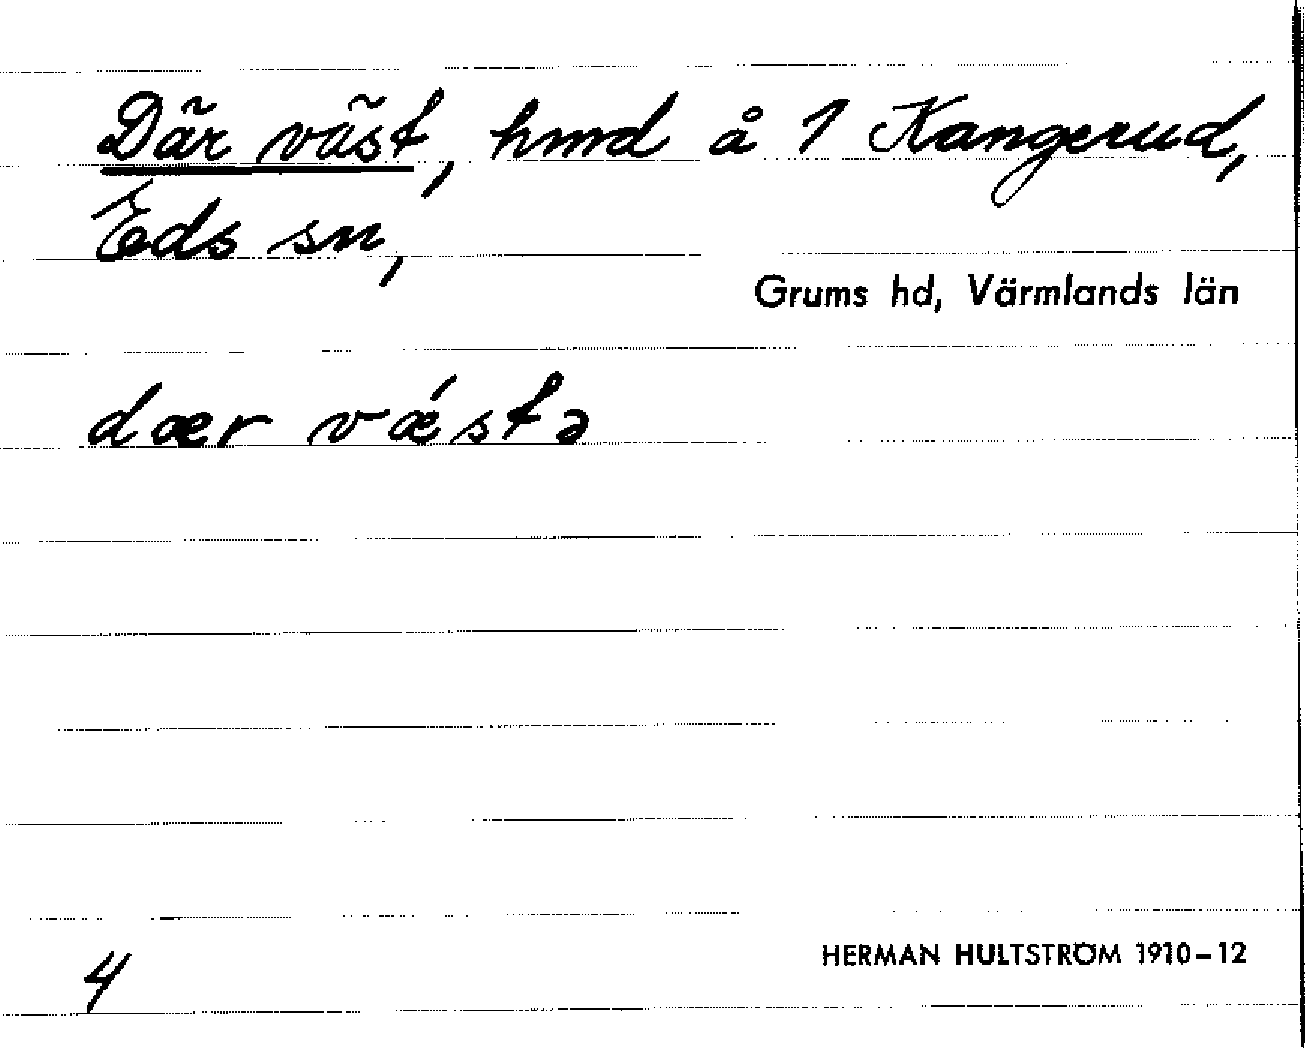 Där väst, hmd å 1 Kangerud,
Eds sn,
Grums hd, Värmlands län
dær vǽstə
4
HERMAN HULTSTRÖM 1910–12